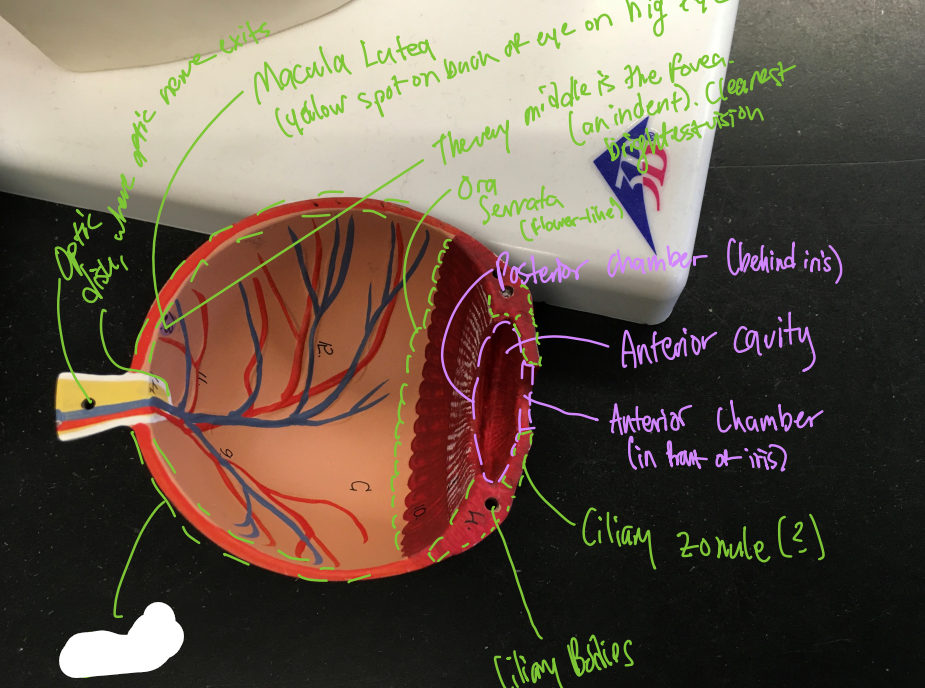 Optic
disk, where optic nerve exits
Macula Lutea
(yellow spot on back of eye on big eye
The very middle is the fovea.
(an indent). Clearest
brightest vision
3B
Ora
Serrata
(flower-like)
Posterior chamber (behind iris)
Anterior cavity
Anterior chamber
(in front of iris)
Ciliary zonule (?)
Ciliary Bodies
12.
11.
9
10